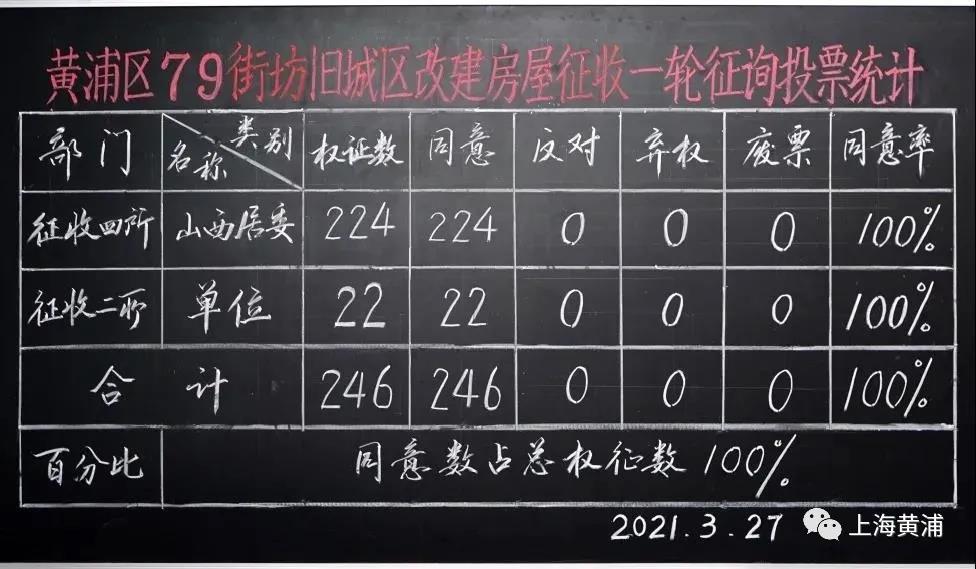 黄浦区79街坊旧城区改建房屋征收一轮征询投票统计
部门 类别 名称 权证数 同意 反对 弃权 废票 同意率
征收四所 山西居委 224 224 0 0 0 100%
征收二所 单位 22 22 0 0 0 100%
合计 246 246 0 0 0 100%
百分比 同意数占总权征数100%
2021.3.27
上海黄浦